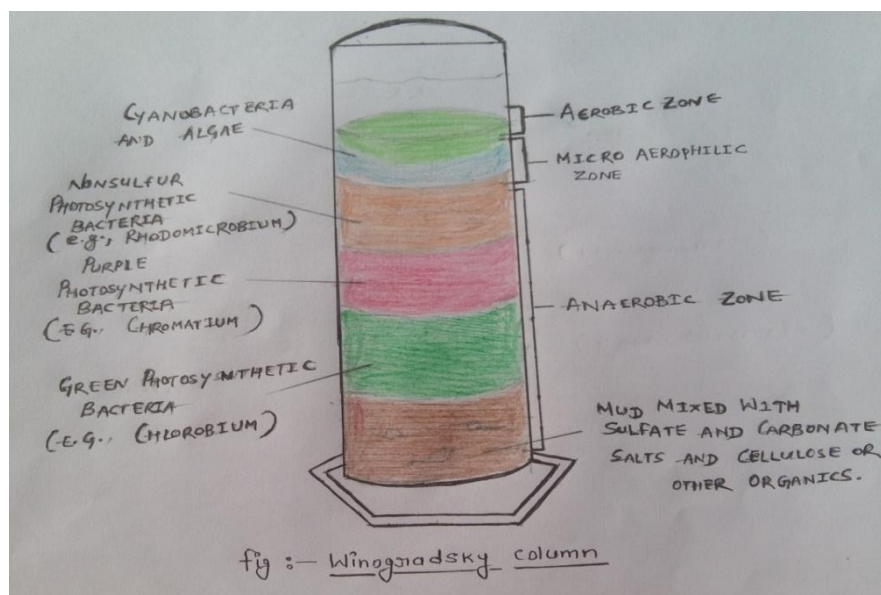 CYANOBACTERIA
AND ALGAE
NONSULFUR
PHOTOSYNTHETIC
BACTERIA
(e.g., RHODOMICROBIUM)
PURPLE
PHOTOSYNTHETIC
BACTERIA
(E.G., CHROMATIUM)
GREEN PHOTOSYNTHETIC
BACTERIA
(E.G., CHLOROBIUM)
AEROBIC ZONE
MICRO AEROPHILIC
ZONE
ANAEROBIC ZONE
MUD MIXED WITH
SULFATE AND CARBONATE
SALTS AND CELLULOSE OR
OTHER ORGANICS.
fig :- Winogradsky column